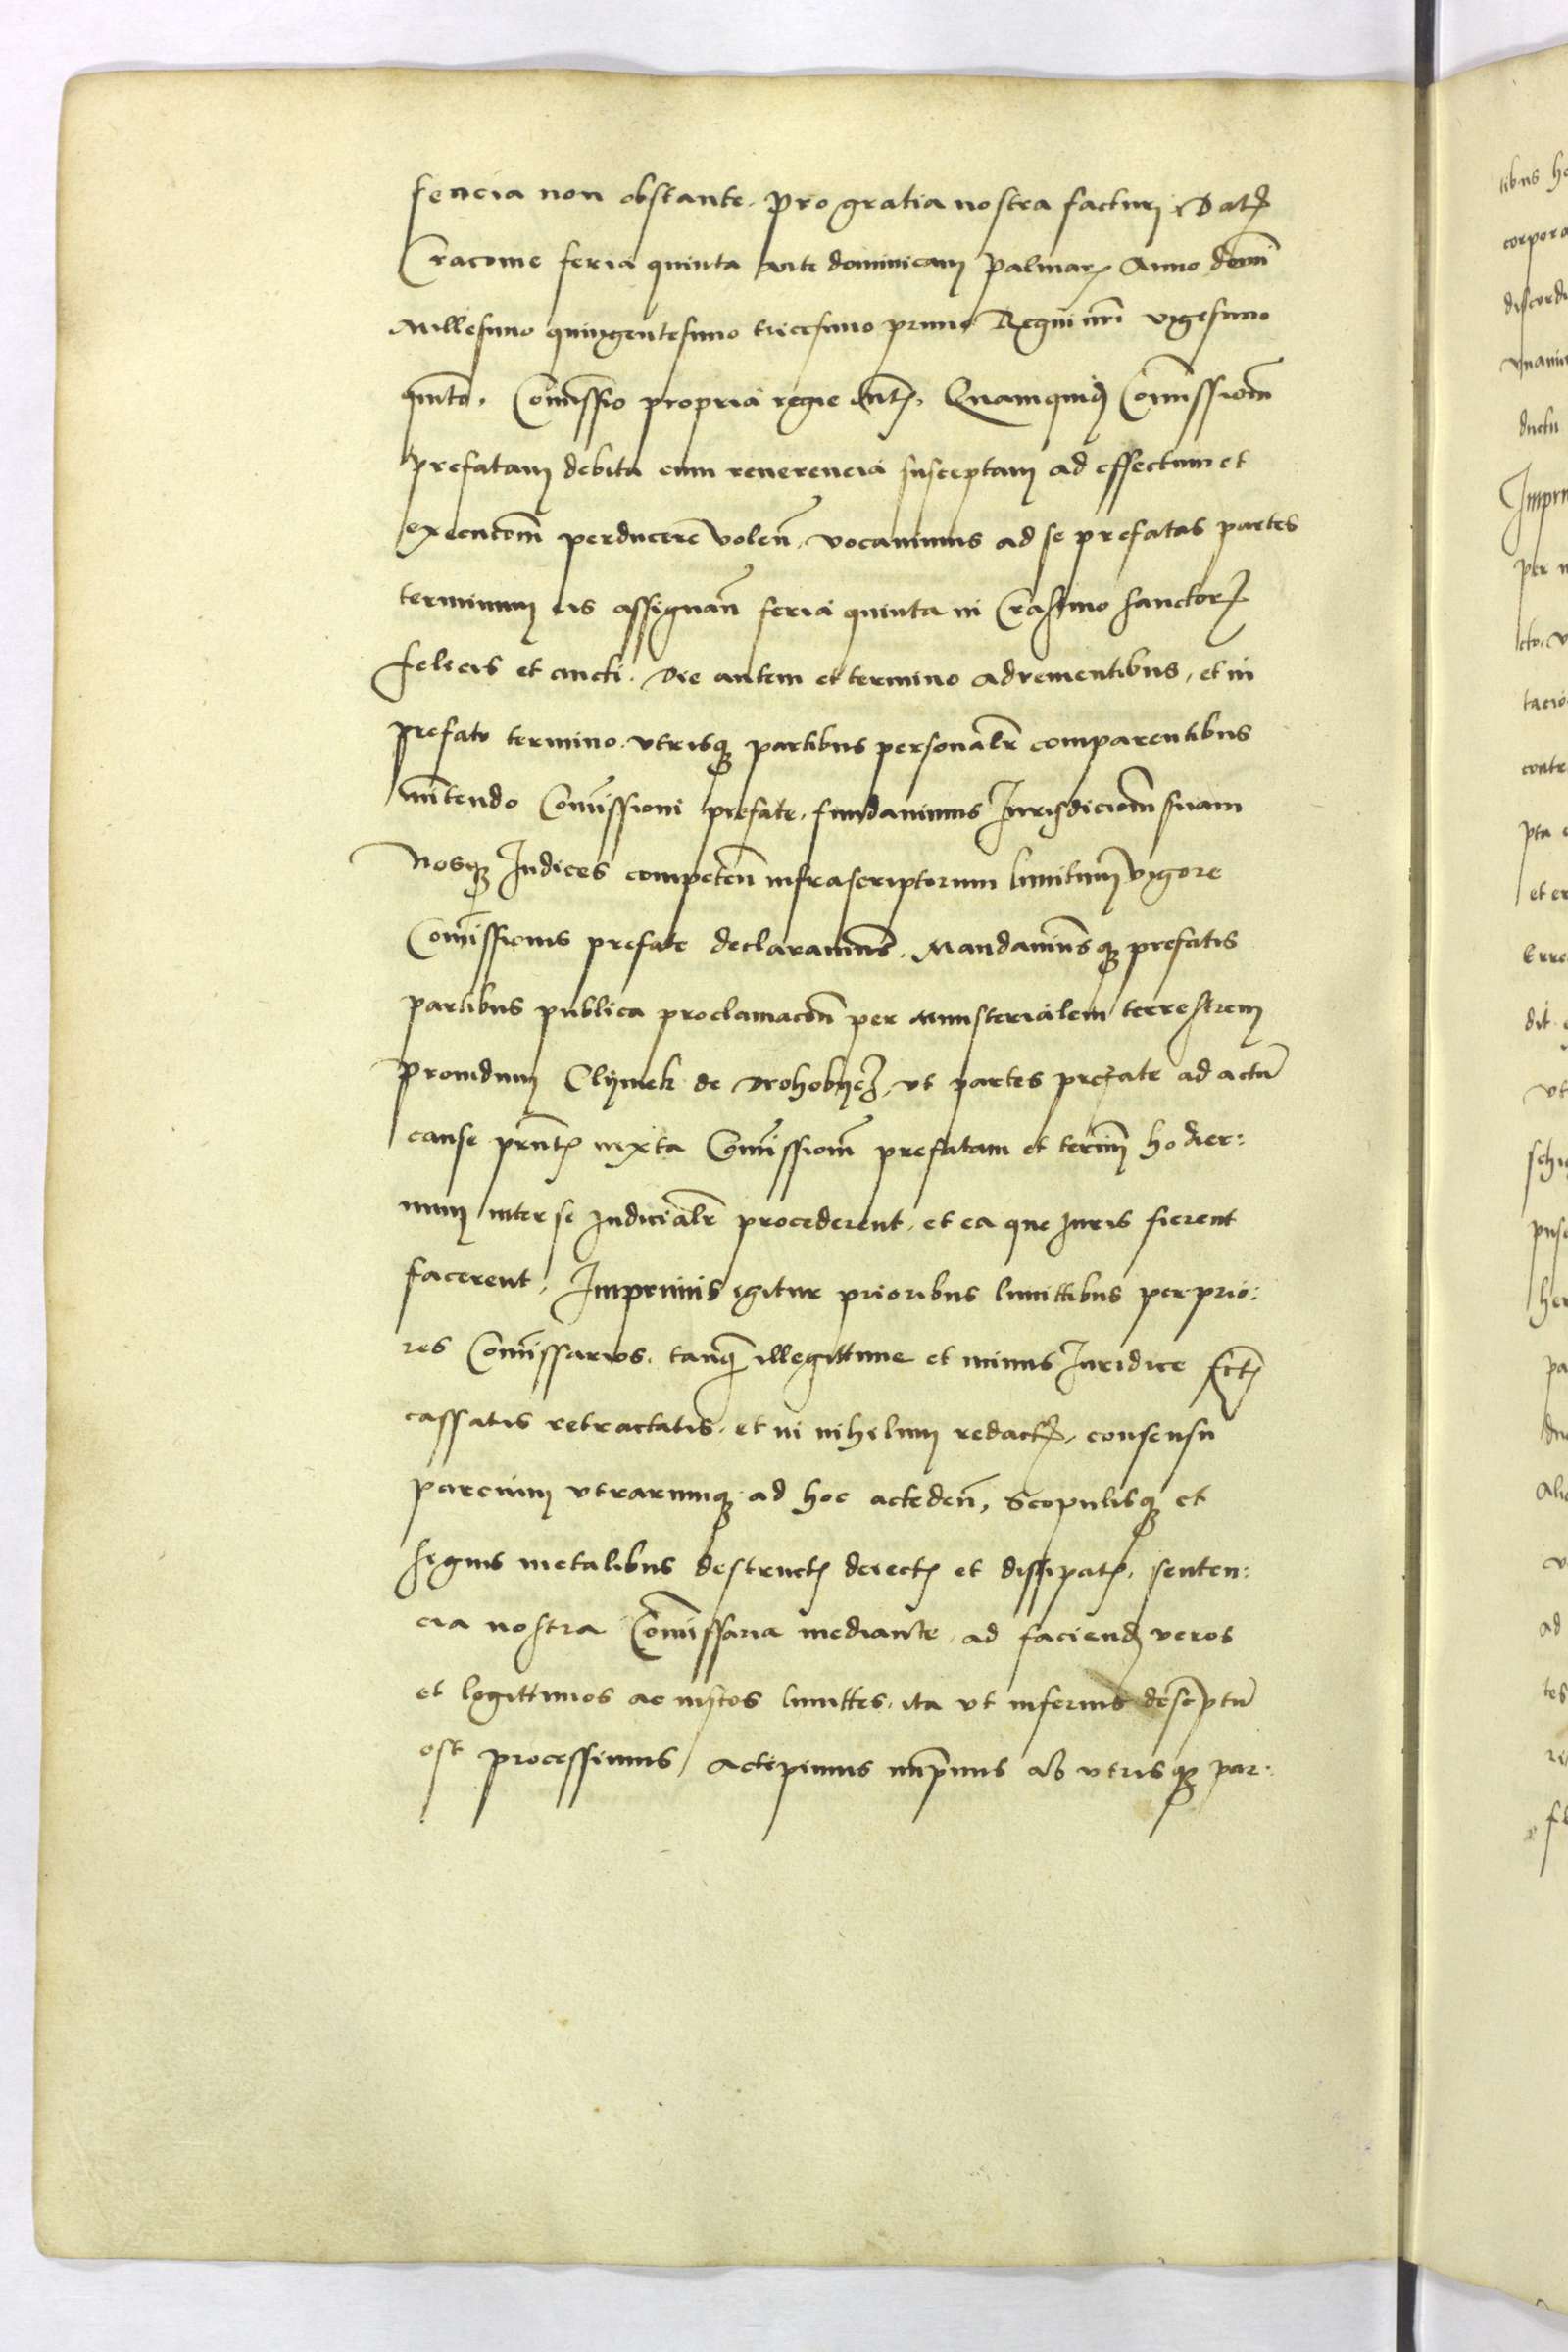 sencia non obstante. pro gratia nostra facturi Datꝭ
Cracovie feria quinta ante dominicam palmarꝝ Anno domi
Millesimo quingentesimo tricesimo primo Regni nri vigesimo
quinto. Comissio propria regie mtꝭ. Quamquidꝫ Comissiom
prefatam debita cum reverencia susceptam ad effectum et
execucom perducere volen. vocavimus ad se prefatas partes
terminum eis assignan feria quinta in Crastino sanctorꝝ
felicis et aucti. Die autem et termino advenientibus, et in
prefato termino. utrisqꝫ partibus personalr comparentibus
innitendo Comissioni prefate. fundavimus Jurisdiciom suam
Nosqꝫ Judices competen infrascriptorum limitum vigore
Comissionis prefate declaravimus. Mandavimusqꝫ prefatis
partibus publica proclamacon per ministerialem terrestrem
providum Clymek de Drohobycz, ut partes prefate ad actu
cause prntꝭ iuxta Comissiom prefatam et termin hodier:
num inter se Judicialr procederent. et ea que Juris fierent
facerent. Imprimis igitur prioribus limittibus per prio:
res Comissarios. tanqꝫ illegittime et minus Juridice fctꝭ
cassatis retractatis. et in nihilum redactꝭ, consensu
parcium utrarumqꝫ ad hoc acteden, Scopulisqꝫ et
signis metalibus destructꝭ deiectꝭ et dissipatꝭ, senten:
cia nostra Comissaria mediante. ad faciendꝫ veros
et legittimos ac iustos limittes. ita ut inferius descptu
est processimus Actepimus inprimis ab utrisqꝫ par: